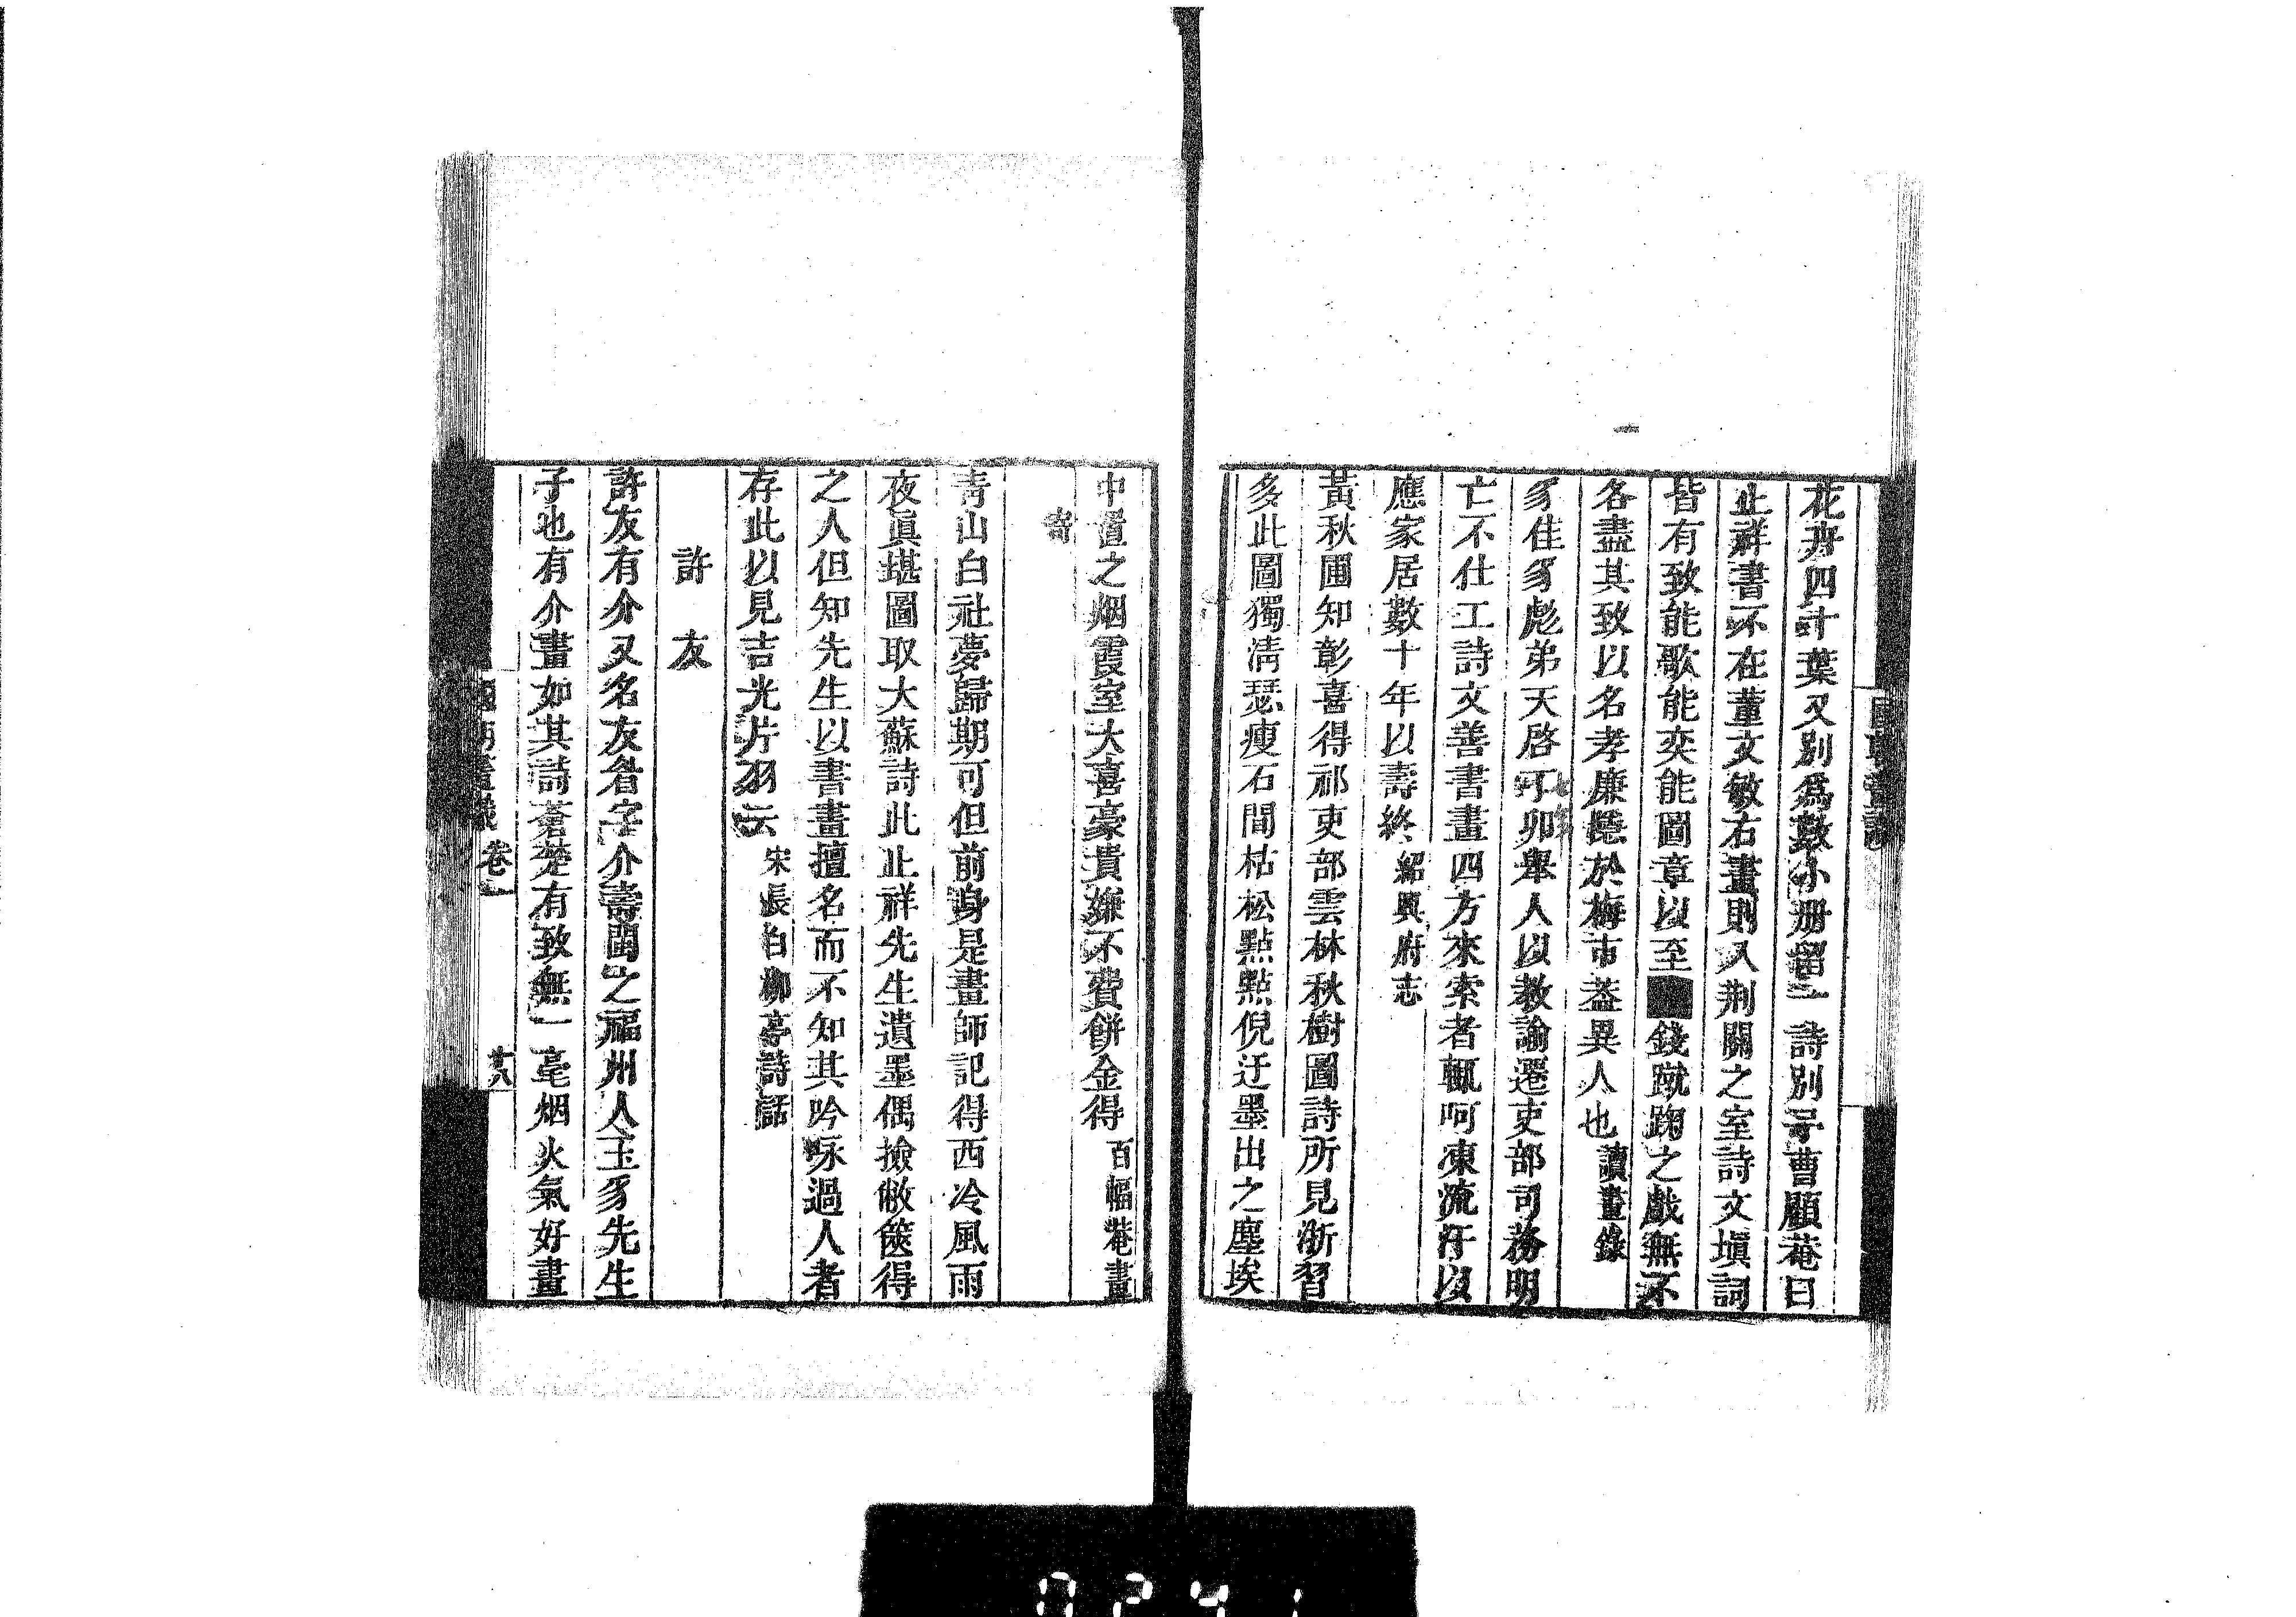 國朝畫識
花卉四十葉又別爲數小册留一詩別予曹顧菴曰
止祥書不在董文敏右畫則入荆關之室詩文塡詞
皆有致能歌能奕能圖章以至錢蹴踘之戲無不
各盡其致以名孝廉隱於梅市葢異人也讀畫錄
豸佳豸彪弟天啓丁卯舉人以教諭遷吏部司務明
亡不仕工詩文善書畫四方來索者輒呵凍流汗以
應家居數十年以壽終紹興府志
黃秋圃知彰喜得祁吏部雲林秋樹圖詩所見浙習
多此圖獨淸瑟瘦石間枯松點點倪迂墨出之塵埃
中置之烟霞室大喜豪貴嫌不費餅金得百幅菴畫
寄
靑山白社夢歸期可但前身是畫師記得西泠風雨
夜眞堪圖取大蘇詩此止祥先生遺墨偶撿敝篋得
之人但知先生以書畫擅名而不知其吟咏過人者
存此以見吉光片羽云宋長白柳亭詩話
許友
許友有介又名友眘字介壽閩之福州人玉豸先生
子也有介畫如其詩蒼楚有致無一毫烟火氣好畫
國朝畫識 卷一 廿八
0241